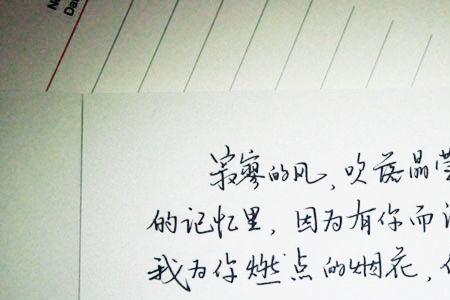 No
Da
寂寥的风，吹落晶莹
的记忆里，因为有你而
我为你燃点的烟花，